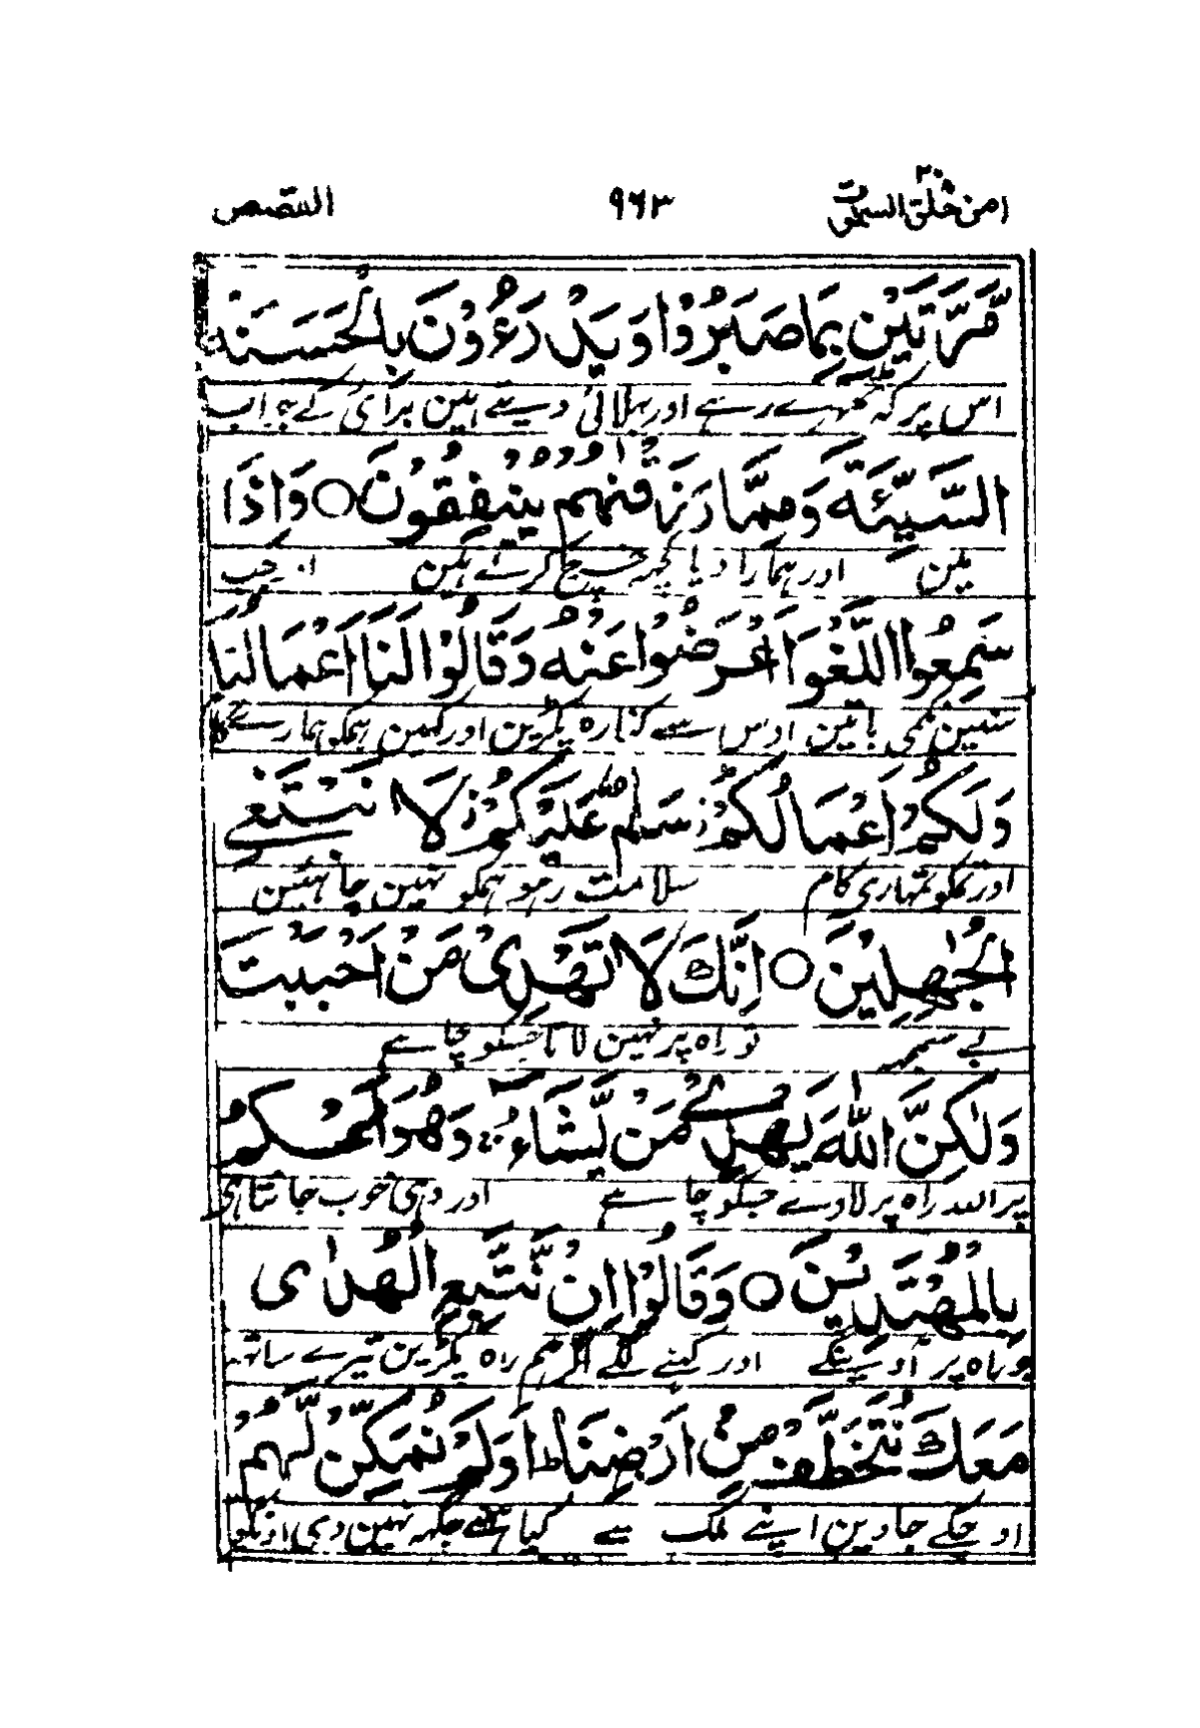 امن خلق السموت ۲۰ ۹۶۳ القصص
مَّرَّتَيْنِ بِمَا صَبَرُوْا وَيَدْرَءُوْنَ بِالْحَسَنَةِ
اس پر کہ ٹھہرے رہے اور بھلائی دیتے ہین برائی کے جواب
السَّيِّئَةَ وَمِمَّا رَزَقْنٰهُمْ يُنْفِقُوْنَ ○ وَاِذَا
مین اور ہمارا دیا کچھ خرچ کرتے ہین اور جب
سَمِعُوا اللَّغْوَ اَعْرَضُوْا عَنْهُ وَقَالُوْا لَنَا اَعْمَالُنَا
سنین نکمی باتین اوس سے کنارہ پکڑین اور کہین ہمکو ہمارے کام
وَلَكُمْ اَعْمَالُكُمْ ز سَلٰمٌ عَلَيْكُمْ ز لَا نَبْتَغِي
اور تمکو تمہاری کام سلامت رہو ہمکو نہین چاہئین
الْجٰهِلِيْنَ ○ اِنَّكَ لَا تَهْدِيْ مَنْ اَحْبَبْتَ
بے سمجھ تو راہ پر نہین لاتا جسکو چاہے
وَلٰكِنَّ اللّٰهَ يَهْدِيْ مَنْ يَّشَآءُ ۚ وَهُوَ اَعْلَمُ
پر اللہ راہ پر لاوے جسکو چاہے اور وہی خوب جانتا ہی
بِالْمُهْتَدِيْنَ ○ وَقَالُوْا اِنْ نَّتَّبِعِ الْهُدٰى
جو راہ پر آوینگے اور کہنے لگے اگر ہم راہ پکڑین تیرے ساتھ
مَعَكَ نُتَخَطَّفْ مِنْ اَرْضِنَا ط اَوَلَمْ نُمَكِّنْ لَّهُمْ
اوچکے جاوین اپنے ملک سے کیا ہمنے جگہہ نہین دی اونکو